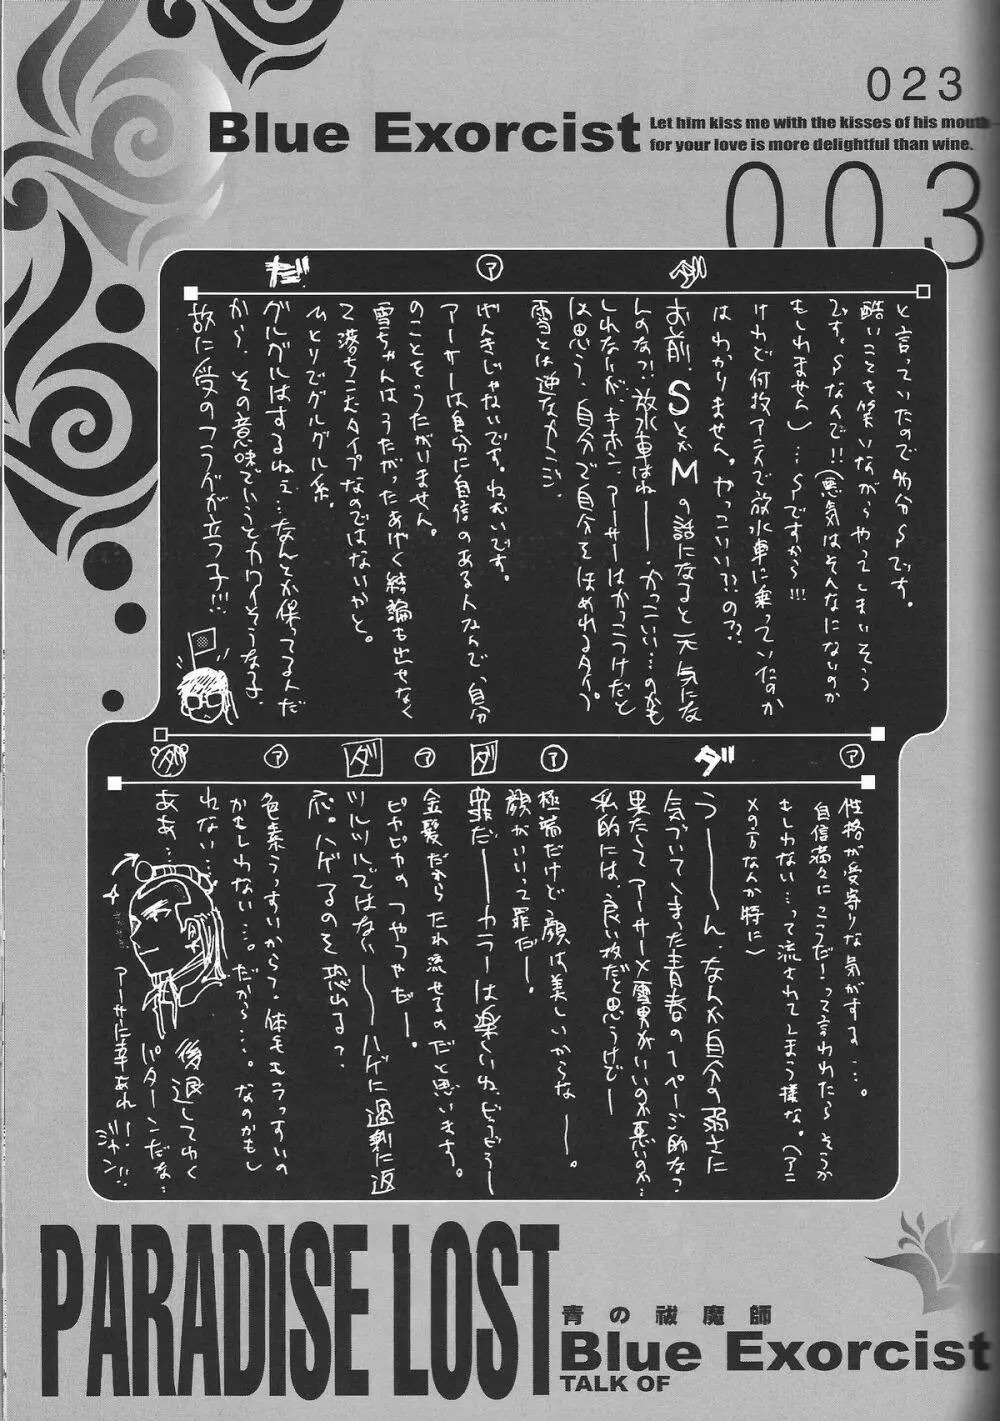 023
Blue Exorcist
Let him kiss me with the kisses of his mouth
for your love is more delightful than wine.
003
と言っていたので多分Sです。
酷いことを笑いながらやってしまいそう
です。Sなんで!!(悪気はそんなにないのか
もしれません)…Sですから!!!
けれど何故アニメで放水車に乗っていたのか
はわかりません。かっこいい??の??
ダ
お前、SとかMの話になると元気にな
んのな?!放水車はねー、かっこいい…のかも
しれないが、キホン、アーサーはかっこつけだと
は思う、自分で自分をほめれるタイプ
雪とは逆なカンジ。
ア
げんきじゃないです。ねむいです。
アーサーは自分に自信のある人なんで、自分
のことをうたがいません。
雪ちゃんはうたがったあげく結論も出せなく
て落ちこむタイプなのではないかと。
ひとりでグルグル系。
だ
グルグルはするねぇ…なんとか保ってるんだ
から、その意味でいうとカワイそうな子、
故に受のフラグが立つ子!!!
ア
性格が受寄りな気がする…。
自信満々にこうだ!って言われたらそうか
もしれない…って流されてしまう様な。(アニ
メの方なんか特に)
ダ
うーーん、なんか自分の弱さに
気づいてしまった青春の1ページ的な?
果たしてアーサー×雪男がいいのか悪いのか…
私的には、良い攻だと思うけどー
ア
極端だけど顔は美しいからなー。
顔がいいって罪だー。
ダ
罪だーーカラーは楽しいね、どうどうー
ア
金髪だれらたれ流せるのだと思います。
ピカピカのつやつやだー。
ダ
ツルツルではないーーハゲに過剰に返
応。ハゲるのを恐れる?
ア
色素うっすいからって、体毛もうっすいの
かもしれない…。だから…。なのかもし
れない…
ダ
ああ…
後退してゆく
パターンだな…
アーサーに幸あれ!
ジャン!!
PARADISE LOST
青の祓魔師
Blue Exorcist
TALK OF